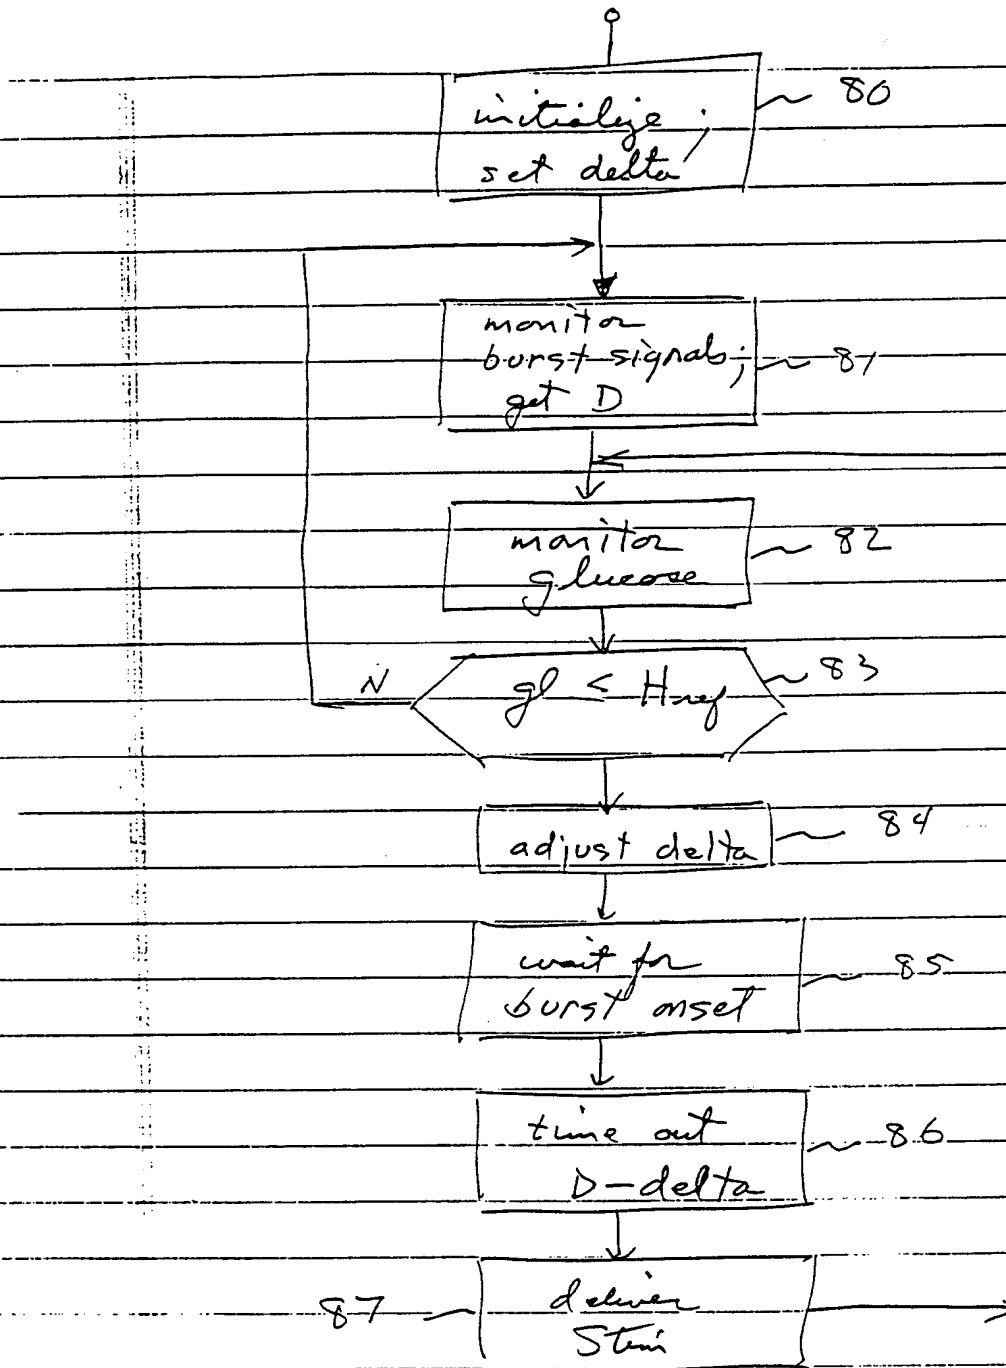 initialize;
set delta
80
monitor
burst signals;
get D
81
monitor
glucose
82
gl < Href
83
N
adjust delta
84
wait for
burst onset
85
time out
D-delta
86
deliver
Stim
87